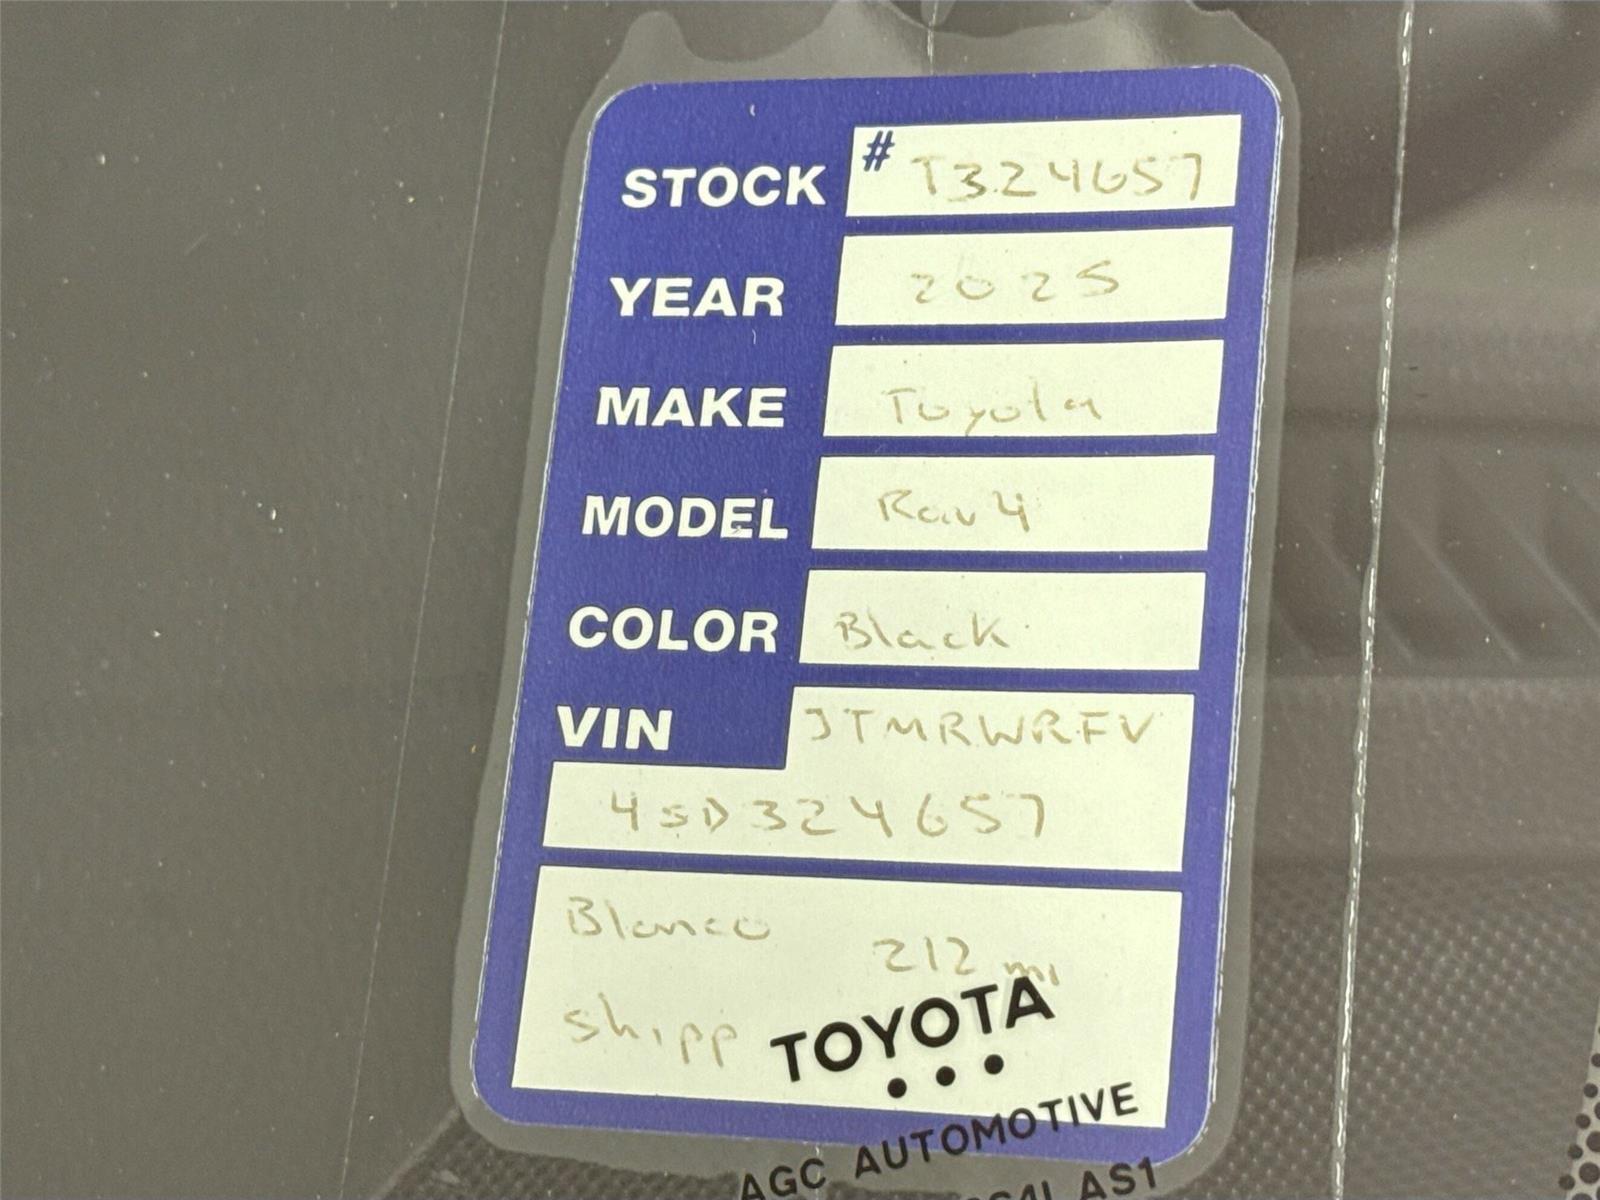 STOCK # T324657
YEAR 2025
MAKE Toyota
MODEL Rav4
COLOR Black
VIN JTMRWRFV
4SD324657
Blanco
212 mi
Shipp
TOYOTA
AGC AUTOMOTIVE
AS1